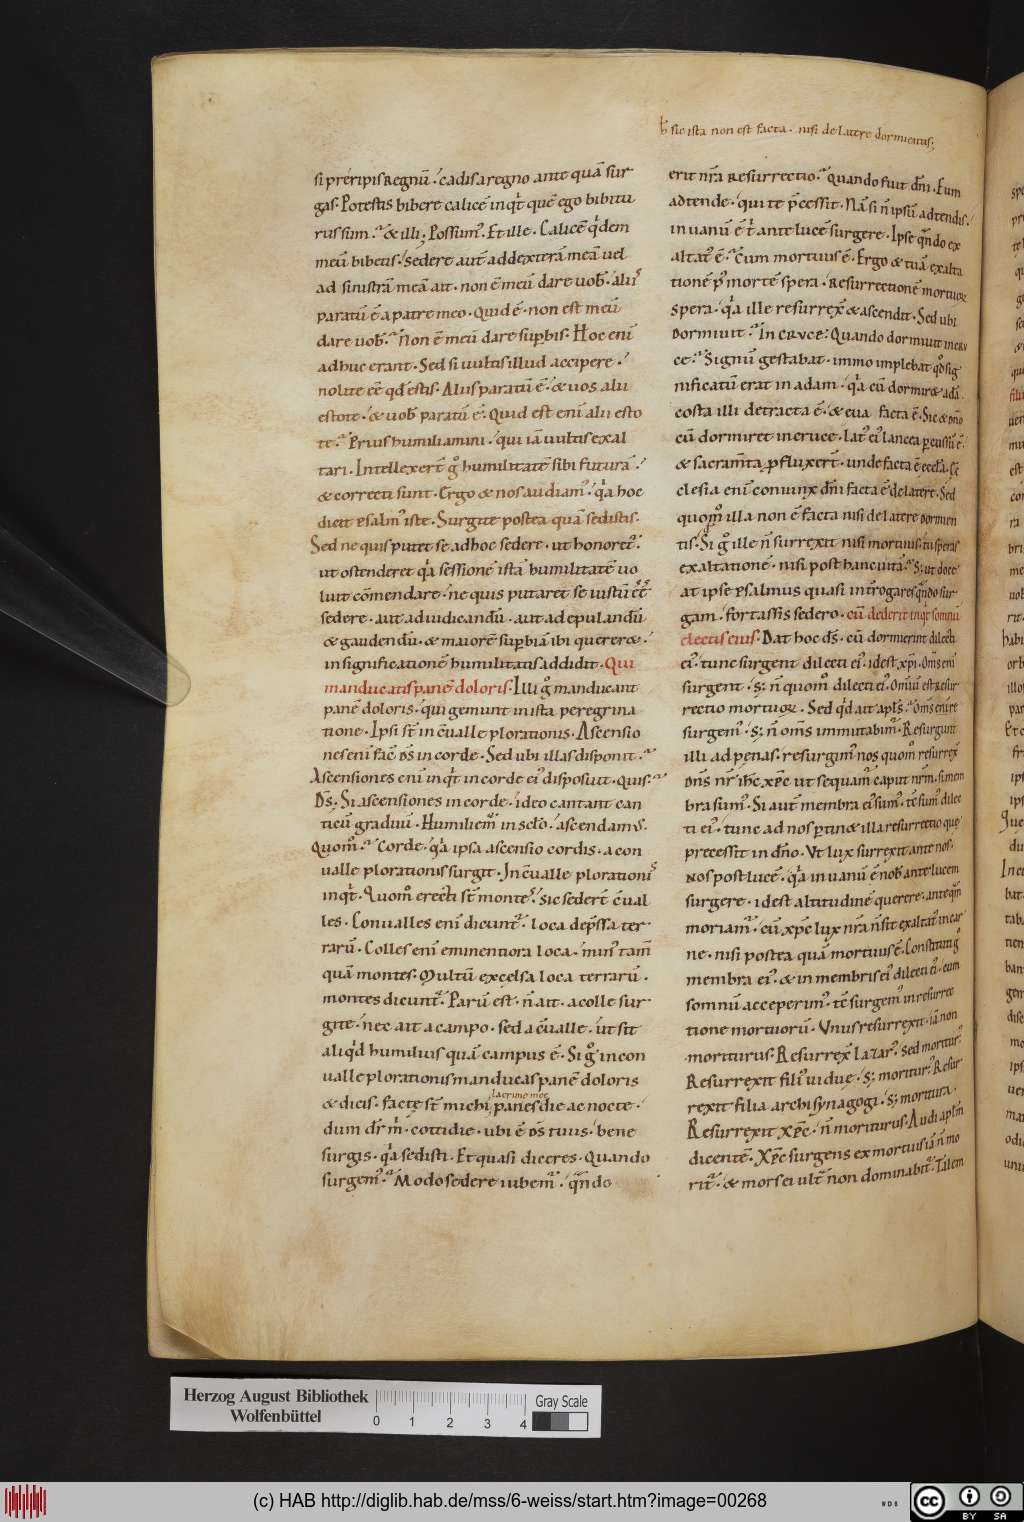 ħ sic ista non est facta · nisi de latere dormientis;
si preripis regnū · cadis a regno ante quā sur
gas · Potestis bibere calicē inqt̄ quē ego bibitu
rus sum · & illi; Possum᷒ · Et ille · Calicē qⁱdem
meū bibetis · sedere aut̄ ad dexterā meā vel
ad sinistrā meā ait · non ē meū dare vob̄ · aliis
paratū ē a patre meo · Quid ē · non est meū
dare vob̄ · Non ē meū dare supbis · Hoc enī
adhuc erant · Sed si vultis illud accipere ·
nolite eē qd̄ estis · Aliis paratū ē · & vos alii
estote · & vob̄ paratū ē · Quid est enī alii esto
te · Prius humiliamini · qui iā vultis exal
tari · Intellexert̄ g° humilitatē sibi futurā ·
& correcti sunt · Ergo & nos audiam᷒ · qⁱa hoc
dicit psalm᷒ iste · Surgite postea quā sedistis ·
Sed ne quis putet se ad hoc sedere · ut honoret᷒ ·
ut ostenderet qⁱa sessionē istā humilitatē vo
luit cōmendare · ne quis putaret se iustū
sedere · aut ad iudicandū · aut ad epulandū
& gaudendū · & maiorē supbiā ibi quereret ·
in significationē humilitatis addidit · Qui
manducatis panē doloris · Illi g° manducant
panē doloris · qui gemunt in ista peregrina
tione · Ipsi st̄ in cv̄alle plorationis · Ascensio
nes enī fac̄ ds̄ in corde · Sed ubi illas disponit ·
Ascensiones enī inqt̄ in corde ei᷒ disposuit · Quis ·
Ds̄; Si ascensiones in corde · ideo cantant can
ticū graduū · Humiliem᷒ in sc̄lo · ascendam᷒ ·
Quom° · Corde · qⁱa ipsa ascensio cordis · a con
valle plorationis surgit · In cv̄alle plorationis
inqt̄ · Quom° erecti st̄ montes · sic sedert̄ cv̄al
les · Convalles enī dicunt᷒ · loca depssa ter
rarū · Colles enī eminentiora loca · min᷒ tam̄
quā montes · Multū excelsa loca terrarū ·
montes dicunt᷒ · Parū est · n̄ ait · a colle sur
gite · nec ait a campo · sed a cv̄alle · ut sit
aliqⁱd humilius quā campus ē · Si g° in con
valle plorationis manducas panē doloris
lacrime mee
& dicis · facte st̄ michi panes die ac nocte ·
dum dr̄ m̄ · cottidie · ubi ē ds̄ tuus · bene
surgis · qⁱa sedisti · Et quasi diceres · Quando
surgem᷒ · Modo sedere iubem᷒ · qn̄do
erit nr̄a resurrectio · Quando fuit dn̄i · Eum
adtende · qui te pcessit · Nā si n̄ ipsū adtendis ·
in vanū ē t̄ ante lucē surgere · Ipse qn̄do ex
altat᷒ ē · Cum mortuus ē · Ergo & tuā exalta
tionē p᷒ mortē spera · Resurrectionē mortuor̄
spera · qⁱa ille resurrex̄ & ascendit · Sed ubi
dormivit · In cruce: Quando dormivit in cru
ce · Signū gestabat · immo implebat qd̄ sig
nificatū erat in adam · qⁱa cū dormiret adā ·
costa illi detracta ē · & eva facta ē · Sic & dn̄o
cū dormiret in cruce · lat᷒ ei᷒ lancea pcussū ē ·
& sacram̄ta pfluxert̄ · unde facta ē eccl̄a · Ec
clesia enī coniunx dn̄i facta ē de latere · Sed
quom° illa non ē facta nisi de latere dormien
tis · Si g° ille n̄ surrexit nisi mortuus · tu speras
exaltationē · nisi post hanc vitā · S; ut doce
at ipse psalmus quasi int̄rogares qn̄do sur
gam · fortassis sedero · cū dederit inqt̄ somnū
electis eius · Dat hoc ds̄ · cū dormierint dilecti
ei᷒ · tunc surgent dilecti ei᷒ · id est xp̄i · Om̄s enī
surgent · s; n̄ quom° dilecti ei᷒ · Omiū est resur
rectio mortuor̄ · Sed qⁱd ait apl̄s · Om̄s enī re
surgem᷒ · s; n̄ om̄s immutabim᷒ · Resurgunt
illi ad penas · resurgim᷒ nos quom° resurrex̄
dn̄s nr̄ ih̄c xp̄c ut sequam᷒ caput nr̄m · si mem
bra sum᷒ · Si aut̄ membra ei᷒ sum᷒ · tc̄ sum᷒ dilec
ti ei᷒ · tunc ad nos ptinet illa resurrectio que
precessit in dn̄o · Ut lux surrexit ante nos ·
nos post lucē · qⁱa in vanū ē nob̄ ante lucem
surgere · id est altitudinē querere · ante qm̄
moriam᷒ · cū xp̄c lux nr̄a n̄ sit exaltat᷒ in car
ne · nisi postea quā mortuus ē · Constituti g°
membra ei᷒ · & in membris ei᷒ dilecti ei᷒ · cum
somnū acceperim᷒ · tc̄ surgem᷒ in resurrec
tione mortuorū · Unus resurrexit · iā non
moriturus · Resurrex̄ lazar᷒ · sed moritur᷒ ·
Resurrexit fili᷒ vidue · s; moritur᷒ · Resur
rexit filia archisynagogi · s; moritura ·
Resurrexit xp̄c · n̄ moriturus · Audi apl̄m
dicentē · Xp̄c surgens ex mortuis iā n̄ mo
rit᷒ · & mors ei ult̄ non dominabit᷒ · Talem
Herzog August Bibliothek
Wolfenbüttel
0 1 2 3 4
Gray Scale
(c) HAB http://diglib.hab.de/mss/6-weiss/start.htm?image=00268
cc BY SA